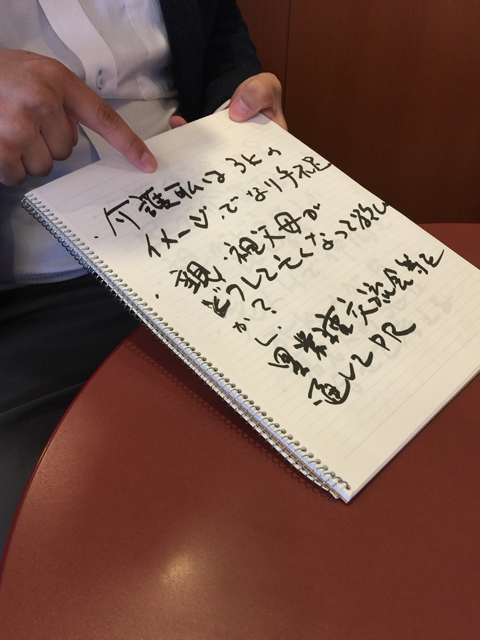 ・介護職は3Kの
イメージでなり手不足
・親・祖父母が
どうして亡くなって欲し
か?
異業種交流会等を
通してPR